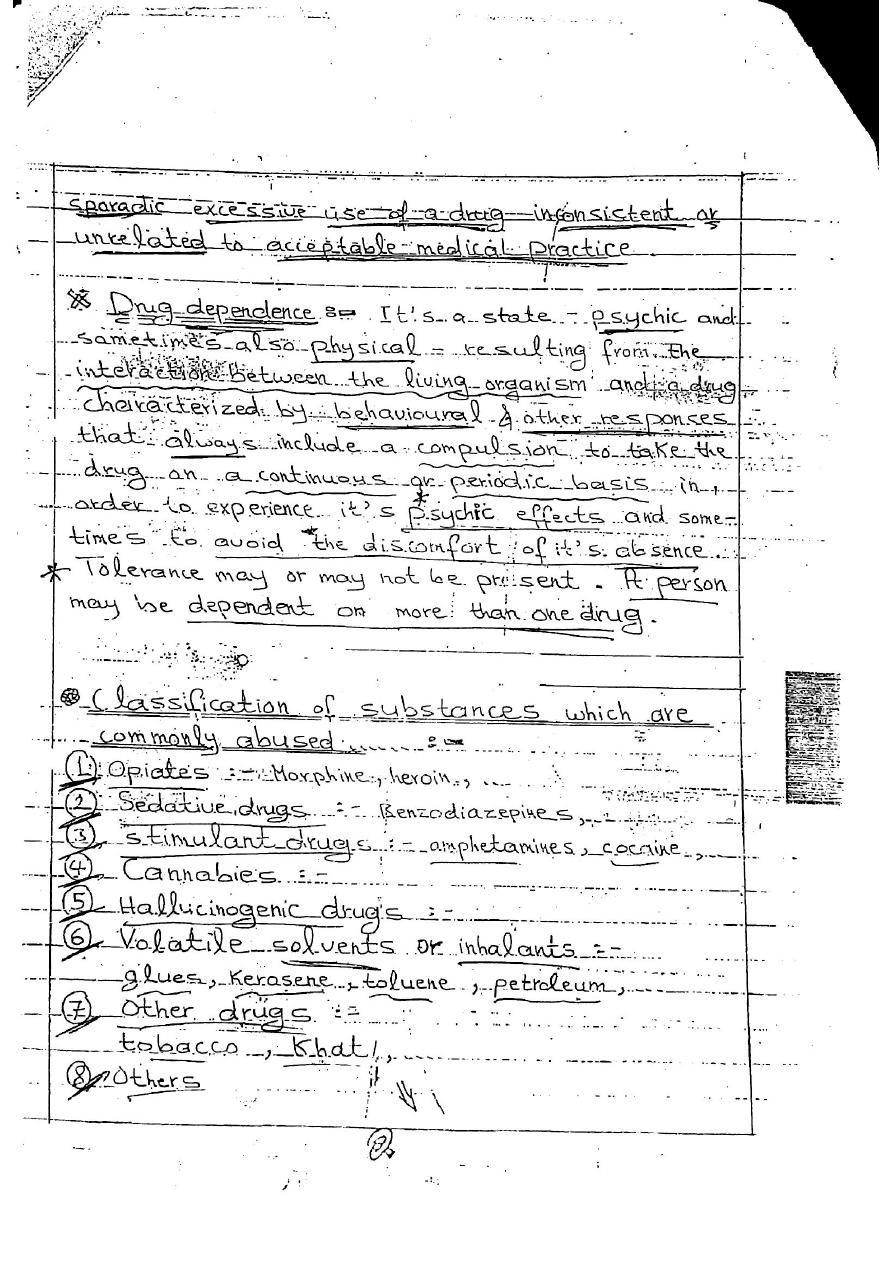 sporadic excessive use of a drug inconsistent or
unrelated to acceptable medical practice
Drug dependence :- It's a state - psychic and
sometimes also physical - resulting from the
interaction between the living organism and a drug
characterized by behavioural & other responses
that always include a compulsion to take the
drug on a continuous or periodic basis in
order to experience it's psychic effects and some-
times to avoid the discomfort of it's absence.
* Tolerance may or may not be present. A person
may be dependent on more than one drug.
Classification of substances which are
commonly abused :-
① Opiates :- Morphine, heroin, ...
② Sedative drugs :- Benzodiazepines,
③ stimulant drugs :- amphetamines, cocaine,
④ Cannabies :-
⑤ Hallucinogenic drugs :-
⑥ Volatile solvents or inhalants :-
glues, Kerasene, toluene, petroleum,
⑦ Other drugs :-
tobacco, Khat,
⑧ Others